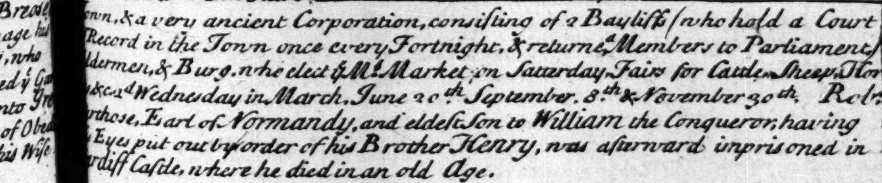 Breose, own, & a very ancient Corporation, consisting of 2 Bayliffs (who hold a Court
age his Record in the Town once every Fortnight, & returne a Members to Parliament,
, who ldermen, & Burg. who elect yͤ Mͬ. Market on Satterday, Fairs for Cattle, Sheep, Hor
ed yͤ &c. 2ᵈ Wednesday in March, June 20ᵗʰ September. 8.ᵗʰ & November 30ᵗʰ. Robᵗ.
nto rthose, Earl of Normandy, and eldest Son to William the Conqueror, having
of Eyes put out by order of his Brother Henry, was afterward imprisoned in
his Wife rdiff Castle, where he died in an old Age.